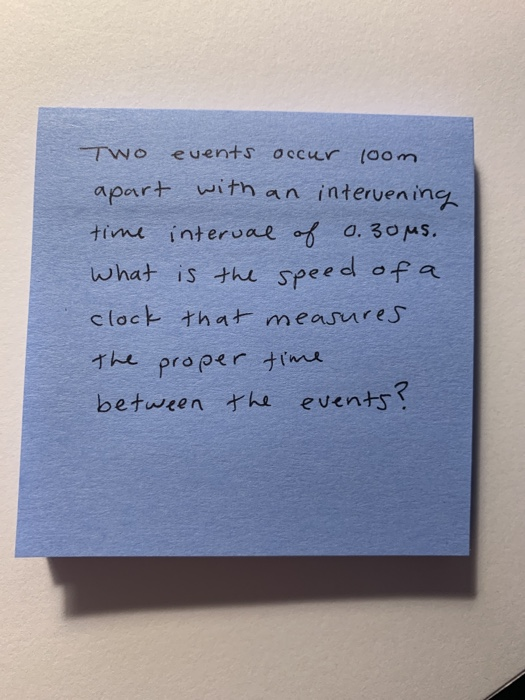 Two events occur 100m
apart with an intervening
time interval of 0.30μs.
What is the speed of a
clock that measures
the proper time
between the events?